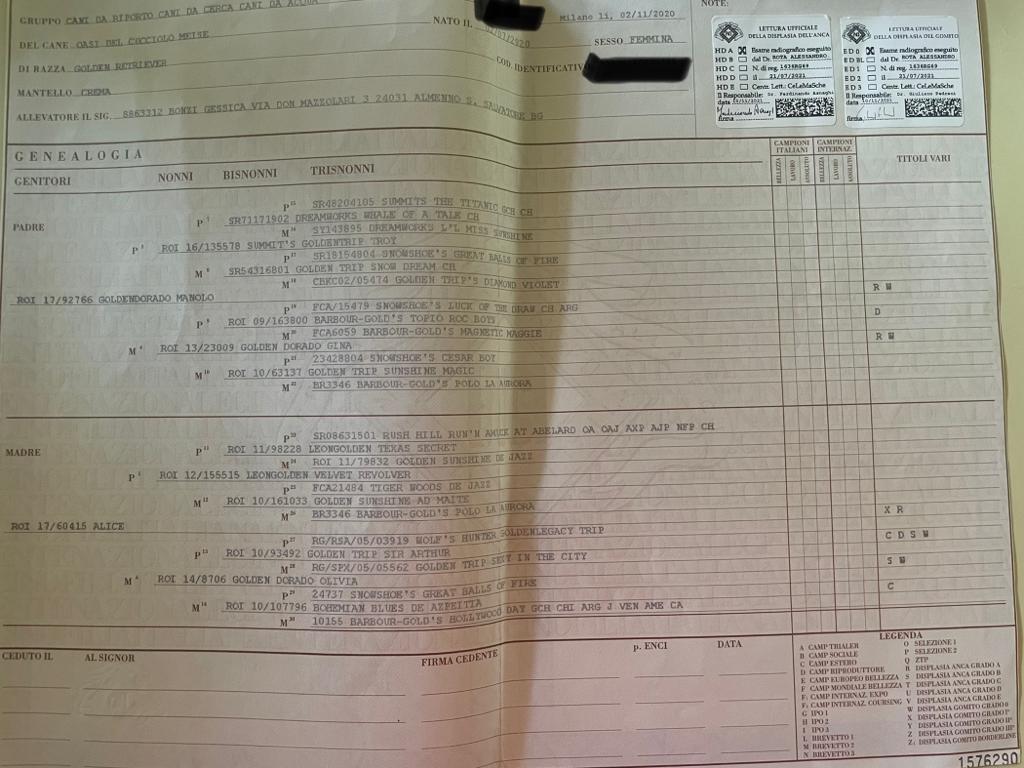 GRUPPO CANI DA RIPORTO CANI DA CERCA CANI DA ACQUA
NATO IL 02/07/2020
Milano li, 02/11/2020
NOTE:
DEL CANE OASI DEL COCCIOLO MEISE
SESSO FEMMINA
DI RAZZA GOLDEN RETRIEVER
COD. IDENTIFICATIV
MANTELLO CREMA
ALLEVATORE IL SIG. 8863312 BONZI GESSICA VIA DON MAZZOLARI 3 24031 ALMENNO S. SALVATORE BG
LETTURA UFFICIALE
DELLA DISPLASIA DELL'ANCA
HD A Esame radiografico eseguito
HD B dal Dr. ROTA ALESSANDRO
HD C N. di reg. 1634RG49
HD D il 21/07/2021
HD E Centr. Lett.: CeLeMaSche
Il Responsabile: Dr. Ferdinando Asnaghi
data
firma
LETTURA UFFICIALE
DELLA DISPLASIA DEL GOMITO
ED 0 Esame radiografico eseguito
ED BL dal Dr. ROTA ALESSANDRO
ED 1 N. di reg. 1634RG49
ED 2 il 21/07/2021
ED 3 Centr. Lett.: CeLeMaSche
Il Responsabile: Dr. Giuliano Pedrani
data
firma
GENEALOGIA
CAMPIONI ITALIANI
CAMPIONI INTERNAZ.
TITOLI VARI
GENITORI NONNI BISNONNI TRISNONNI
BELLEZZA LAVORO ASSOLUTO BELLEZZA LAVORO ASSOLUTO
P SR48204105 SUMMITS THE TITANIC GCH CH
P SR71171902 DREAMWORKS WHALE OF A TALE CH
PADRE
M SY143895 DREAMWORKS L'L MISS SUNSHINE
P ROI 16/135578 SUMMIT'S GOLDENTRIP TROY
P SR18154804 SNOWSHOE'S GREAT BALLS OF FIRE
M SR54316801 GOLDEN TRIP SNOW DREAM CH
M CHKC02/05474 GOLDEN TRIP'S DIAMOND VIOLET
R W
ROI 17/92766 GOLDENDORADO MANOLO
P FCA/15479 SNOWSHOE'S LUCK OF THE DRAW CH ARG
D
P ROI 09/163800 BARBOUR-GOLD'S TOPIO ROC BOTS
M FCA6059 BARBOUR-GOLD'S MAGNETIC MAGGIE
R W
M ROI 13/23009 GOLDEN DORADO GINA
P 23428804 SNOWSHOE'S CESAR BOY
M ROI 10/63137 GOLDEN TRIP SUNSHINE MAGIC
M BR3346 BARBOUR-GOLD'S POLO LA AURORA
P SR08631501 RUSH HILL RUN'N AMUCK AT ABELARD OA OAJ AXP AJP NFP CH
MADRE
P ROI 11/98228 LEONGOLDEN TEXAS SECRET
M ROI 11/79832 GOLDEN SUNSHINE DE JAZZ
P ROI 12/155515 LEONGOLDEN VELVET REVOLVER
P FCA21484 TIGER WOODS DE JAZZ
M ROI 10/161033 GOLDEN SUNSHINE AD MAITE
M BR3346 BARBOUR-GOLD'S POLO LA AURORA
X R
ROI 17/60415 ALICE
P RG/RSA/05/03919 WOLF'S HUNTER GOLDENLEGACY TRIP
C D S W
P ROI 10/93492 GOLDEN TRIP SIR ARTHUR
M RG/SPX/05/05562 GOLDEN TRIP SEXY IN THE CITY
S W
M ROI 14/8706 GOLDEN DORADO OLIVIA
P 24737 SNOWSHOE'S GREAT BALLS OF FIRE
C
M ROI 10/107796 BOHEMIAN BLUES DE AZPEITIA
M 10155 BARBOUR-GOLD'S HOLLYWOOD DAY GCH CHI ARG J VEN AME CA
CEDUTO IL AL SIGNOR FIRMA CEDENTE p. ENCI DATA
LEGENDA
A CAMP TRIALER
B CAMP SOCIALE
C CAMP ESTERO
D CAMP RIPRODUTTORE
E CAMP EUROPEO BELLEZZA
F CAMP MONDIALE BELLEZZA
F: CAMP INTERNAZ. EXPO
F: CAMP INTERNAZ. COURSING
G IPO 1
H IPO 2
I IPO 3
L BREVETTO 1
M BREVETTO 2
N BREVETTO 3
O SELEZIONE 1
P SELEZIONE 2
Q ZTP
R DISPLASIA ANCA GRADO A
S DISPLASIA ANCA GRADO B
T DISPLASIA ANCA GRADO C
U DISPLASIA ANCA GRADO D
V DISPLASIA ANCA GRADO E
W DISPLASIA GOMITO GRADO 0
X DISPLASIA GOMITO GRADO I°
Y DISPLASIA GOMITO GRADO II°
Z DISPLASIA GOMITO GRADO III°
Z: DISPLASIA GOMITO BORDERLINE
1576290